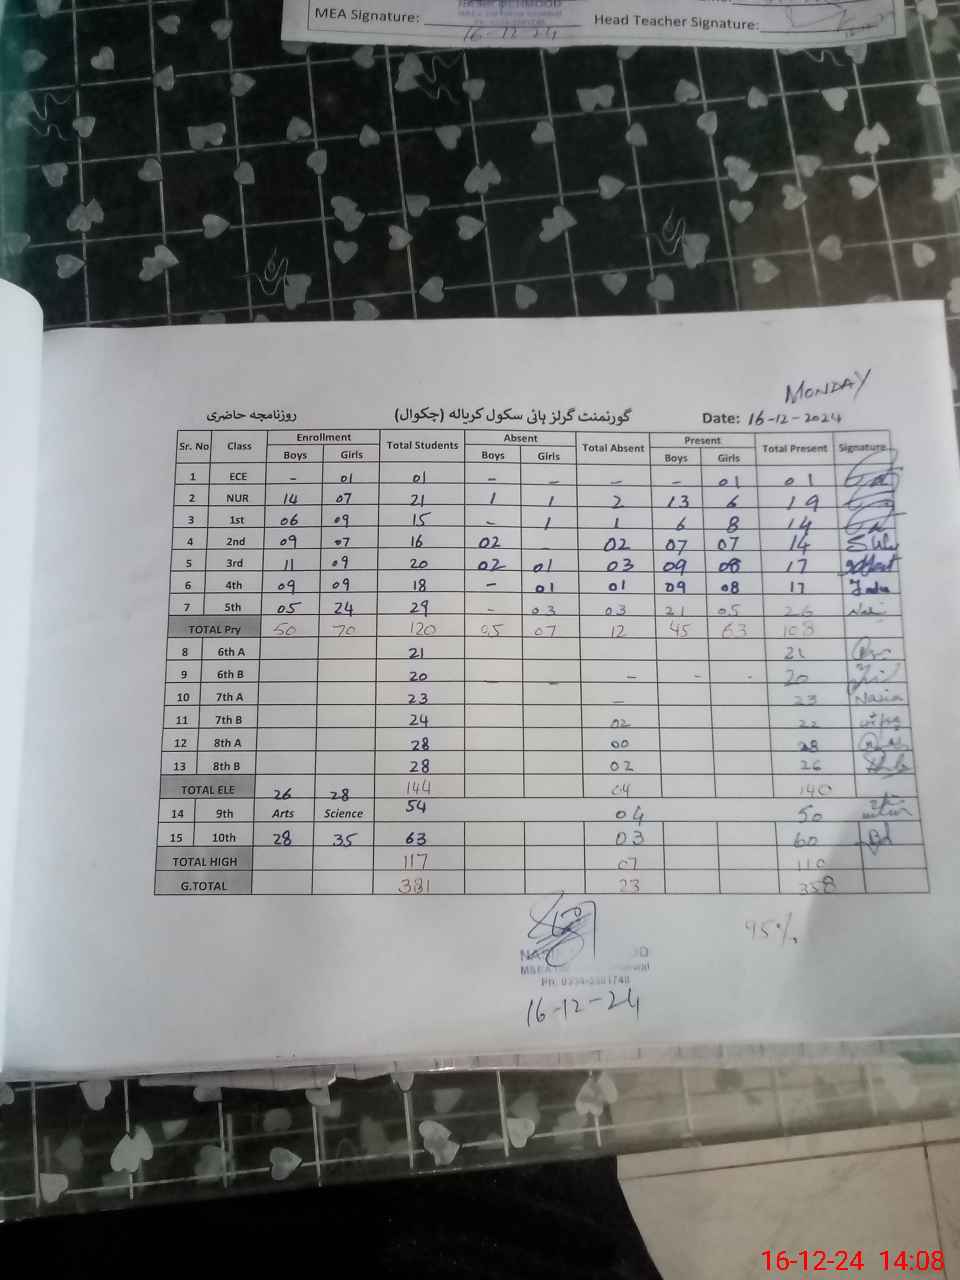 MEA Signature: Head Teacher Signature:
16-12-24
MONDAY
روزنامچہ حاضری گورنمنٹ گرلز ہائی سکول کریالہ (چکوال) Date: 16-12-2024
Sr. No Class Enrollment Total Students Absent Total Absent Present Total Present Signature
Boys Girls Boys Girls Boys Girls
1 ECE - 01 01 - - - - 01 01
2 NUR 14 07 21 1 1 2 13 6 19
3 1st 06 09 15 - 1 1 6 8 14
4 2nd 09 07 16 02 - 02 07 07 14
5 3rd 11 09 20 02 01 03 09 08 17
6 4th 09 09 18 - 01 01 09 08 17
7 5th 05 24 29 - 03 03 21 05 26
TOTAL Pry 50 70 120 05 07 12 45 63 108
8 6th A 21 21
9 6th B 20 - - - - - 20
10 7th A 23 - 23 Nasia
11 7th B 24 02 22
12 8th A 28 00 28
13 8th B 28 02 26
TOTAL ELE 144 04 140
26 28
14 9th Arts Science 54 04 50
15 10th 28 35 63 03 60
TOTAL HIGH 117 07 110
G.TOTAL 381 23 358
95%
16-12-24
16-12-24 14:08